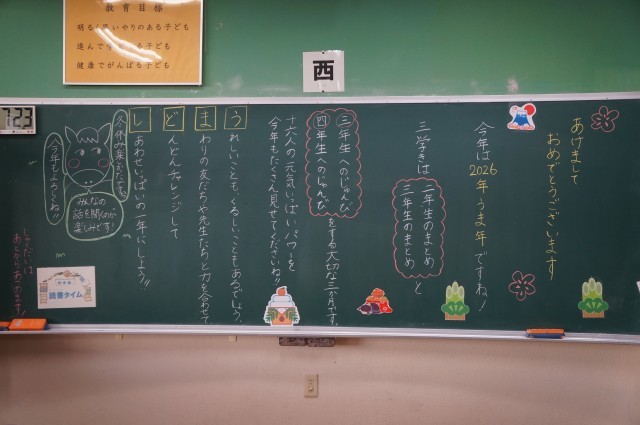 教育目標
明るく思いやりのある子ども
進んで
る子ども
健康でがんばる子ども
西
7:23
あけまして
おめでとうございます
今年は2026年うま年ですね!
三学きは
二年生のまとめ
三年生のまとめ
と
三年生へのじゅんび
四年生へのじゅんび
をする大切な三か月です。
十六人の元気いっぱいパワーを
今年もたくさん見せてくださいね!!
うれしいことも、くるしいこともあるでしょう。
まわりの友だちや先生たちと力を合せて
どんどんチャレンジして
しあわせいっぱいの一年にしよう!!
冬休み楽しかったかな?
みんなの
話を聞くのが
楽しみです!
今年もよろしくね!!
読書タイム
しゅくだいは
あとからあつめます!